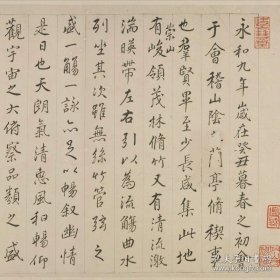 永和九年歲在癸丑暮春之初會
于會稽山陰之蘭亭脩禊事
也群賢畢至少長咸集此地
崇山
有峻領茂林脩竹又有清流激
湍暎帶左右引以為流觴曲水
列坐其次雖無絲竹管弦之
盛一觴一詠亦足以暢叙幽情
是日也天朗氣清惠風和暢仰
觀宇宙之大俯察品類之盛